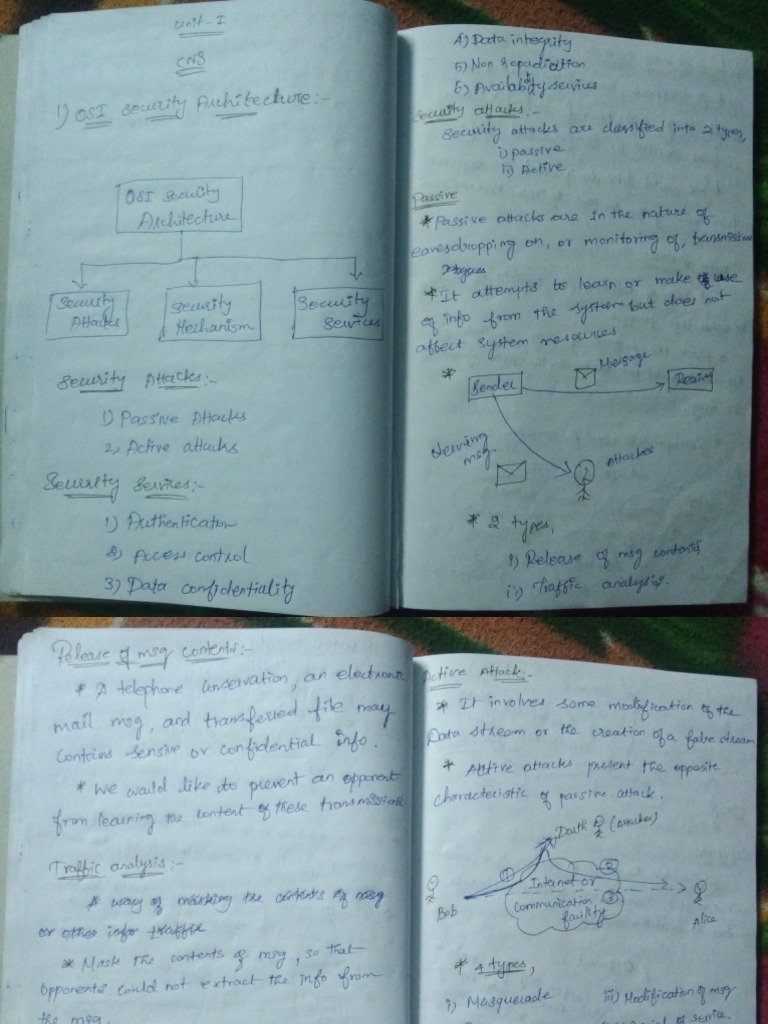 Unit-I
CNS
1) OSI Security Architecture:-
OSI Security
Architecture
Security
Attacks
Security
Mechanism
Security
Sevices
Security Attacks:-
1) Passive Attacks
2) Active attacks
Security Services:-
1) Authentication
2) Access control
3) Data confidentiality
4) Data integrity
5) Non repudiation
6) Availability services
Security attacks:-
Security attacks are classified into 2 types,
i) passive
ii) Active
Passive
* Passive attacks are in the nature of
eavesdropping on, or monitoring of, transmission
* It attempts to learn or make use
of info from the system but does not
affect system resources
*
Sender
Message
Receiver
msg
Attacker
* 2 types,
i) Release of msg contents
ii) Traffic analysis.
Release of msg contents:-
* A telephone conservation, an electronic
mail msg, and transferred file may
contains sensive or confidential info.
* We would like to prevent an opponent
from learning the content of these transmissions
Traffic analysis:-
* way of masking the contents of msg
or other info traffic
* Mask the contents of msg, so that
opponents could not extract the info from
the msg.
Active Attack:-
* It involves some modification of the
Data stream or the creation of a false stream
* Active attacks present the opposite
characteristic of passive attack.
Darth (Attacker)
1
2
Internet or
3
communication
facility
Bob
Alice
* 4 types,
i) Masquerade
iii) Modification of msg
of service.